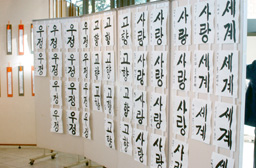 우정
우정 우정 우정 우정
우정 우정 우정 우정
우정 우정 우정 우정
고향 고향 고향 고향
고향 고향 고향 고향
고향 고향 고향 고향
사랑 사랑 사랑 사랑
사랑 사랑 사랑 사랑
사랑 사랑 사랑 사랑
세계 세계 세계
세계 세계 세계